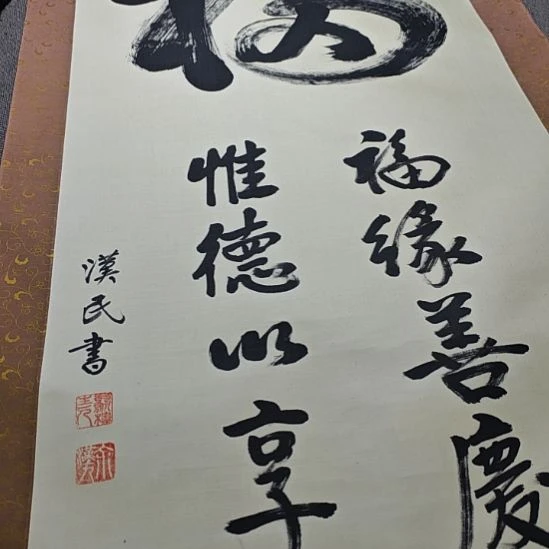 福緣善慶
惟德以享
漢民書